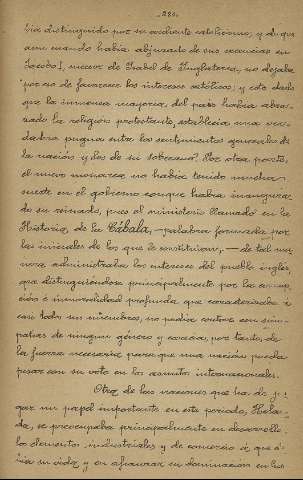 -220-
bía distinguido por su ardiente catolicismo, y de que
aun cuando había abjurado de sus creencias en
Jacobo I, sucesor de Isabel de Inglaterra, no dejaba
por eso de favorecer los intereses católicos; y esto dado
que la inmensa mayoría del país había abra-
zado la religión protestante, establecía una ver-
dadera pugna entre los sentimientos generales de
la nación y los de su soberano. Por otra parte,
el nuevo monarca no había tenido mucha
suerte en el gobierno conque había inaugura-
do su reinado, pues el ministerio llamado en la
Historia de la Cábala, -palabra formada por
las iniciales de los que le constituían,- de tal ma-
nera administraba los intereses del pueblo inglés,
que distinguiéndose principalmente por la
ción é inmoralidad profunda que caracterizaba á
casi todos sus miembros, no podía contar con sim-
patías de ningún género y carecía, por tanto, de
la fuerza necesaria para que una nación pueda
pesar con su voto en los asuntos internacionales.
Otra de las naciones que ha de ju-
gar un papel importante en este período, Holan-
da, se preocupaba principalmente en desarrollar
los elementos industriales y de comercio á que
bía su vida y en afianzar su dominación en las